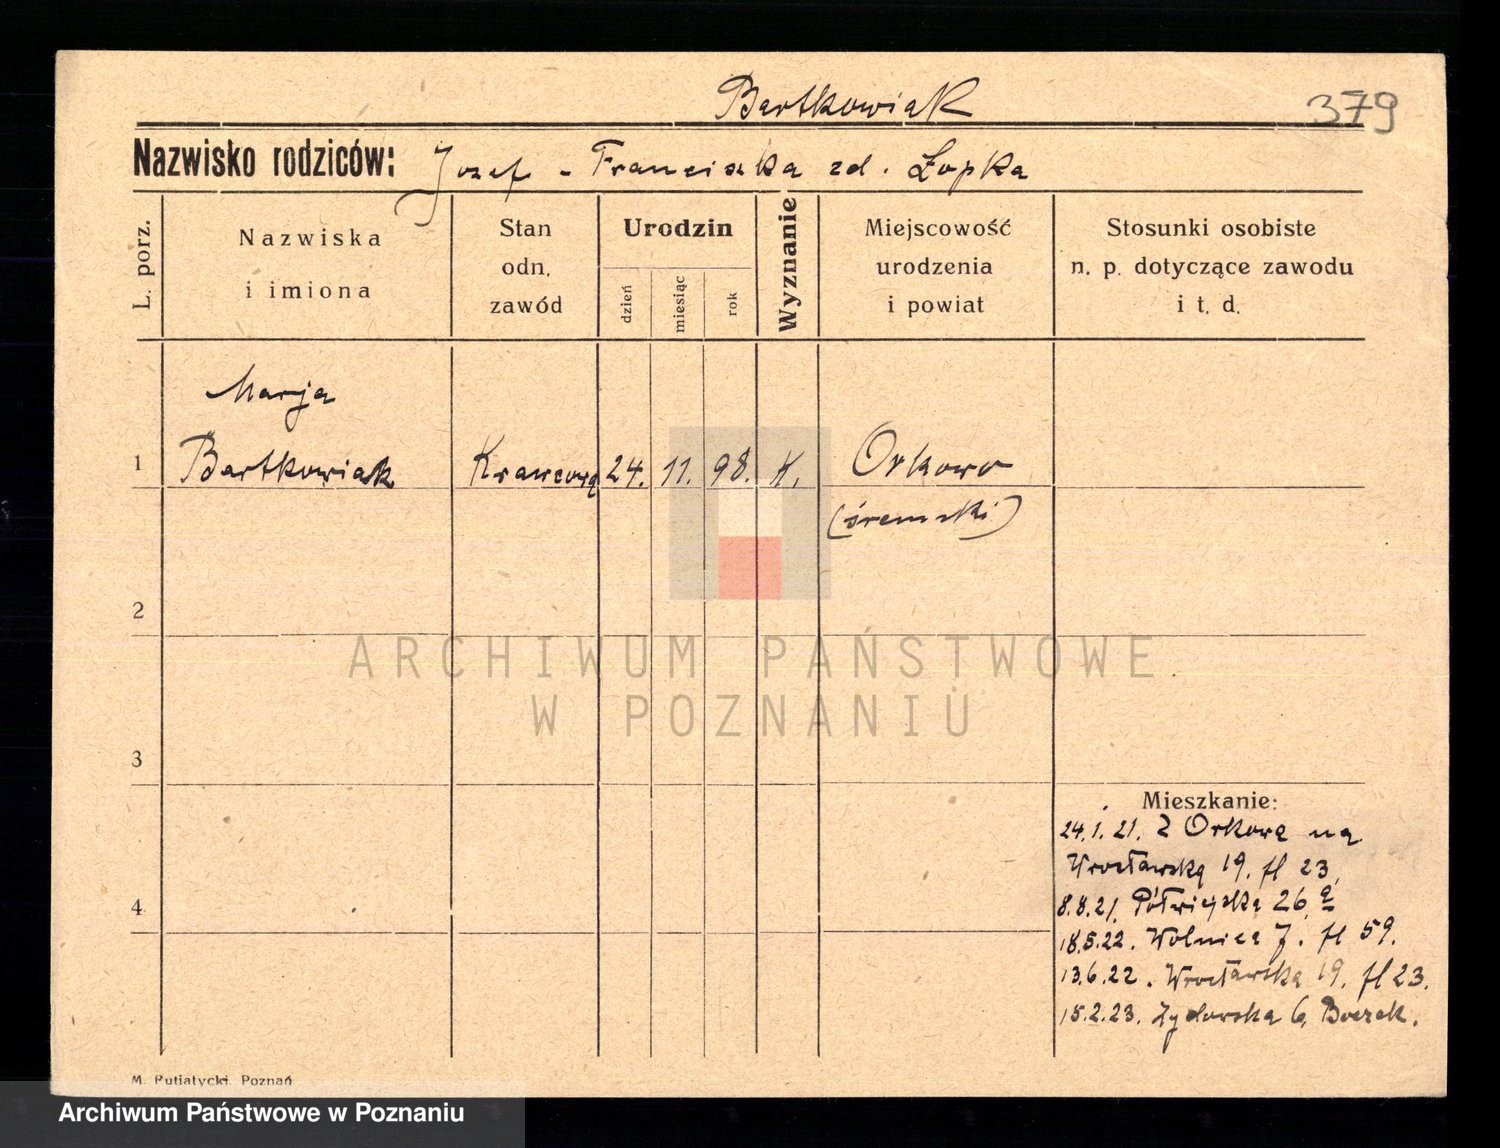 Bartkowiak
379
Nazwisko rodziców: Jozef - Franciszka zd. Łopka
L. porz.
Nazwiska
i imiona
Stan
odn.
zawód
Urodzin
dzień
miesiąc
rok
Wyznanie
Miejscowość
urodzenia
i powiat
Stosunki osobiste
n. p. dotyczące zawodu
i t. d.
Marja
1 Bartkowiak Krawcową 24. 11. 98. K. Orkowo
(śremski)
2
ARCHIWUM PAŃSTWOWE
W POZNANIU
3
Mieszkanie:
24.1.21. Z Orkowa na
Wrocławską 19. fl 23,
4
8.8.21. Półwiejska 26 a
18.5.22. Wolnica 7. fl 59.
13.6.22. Wrocławska 19. fl 23.
15.2.23. Żydowska 6,
M. Putiatycki, Poznań
Archiwum Państwowe w Poznaniu